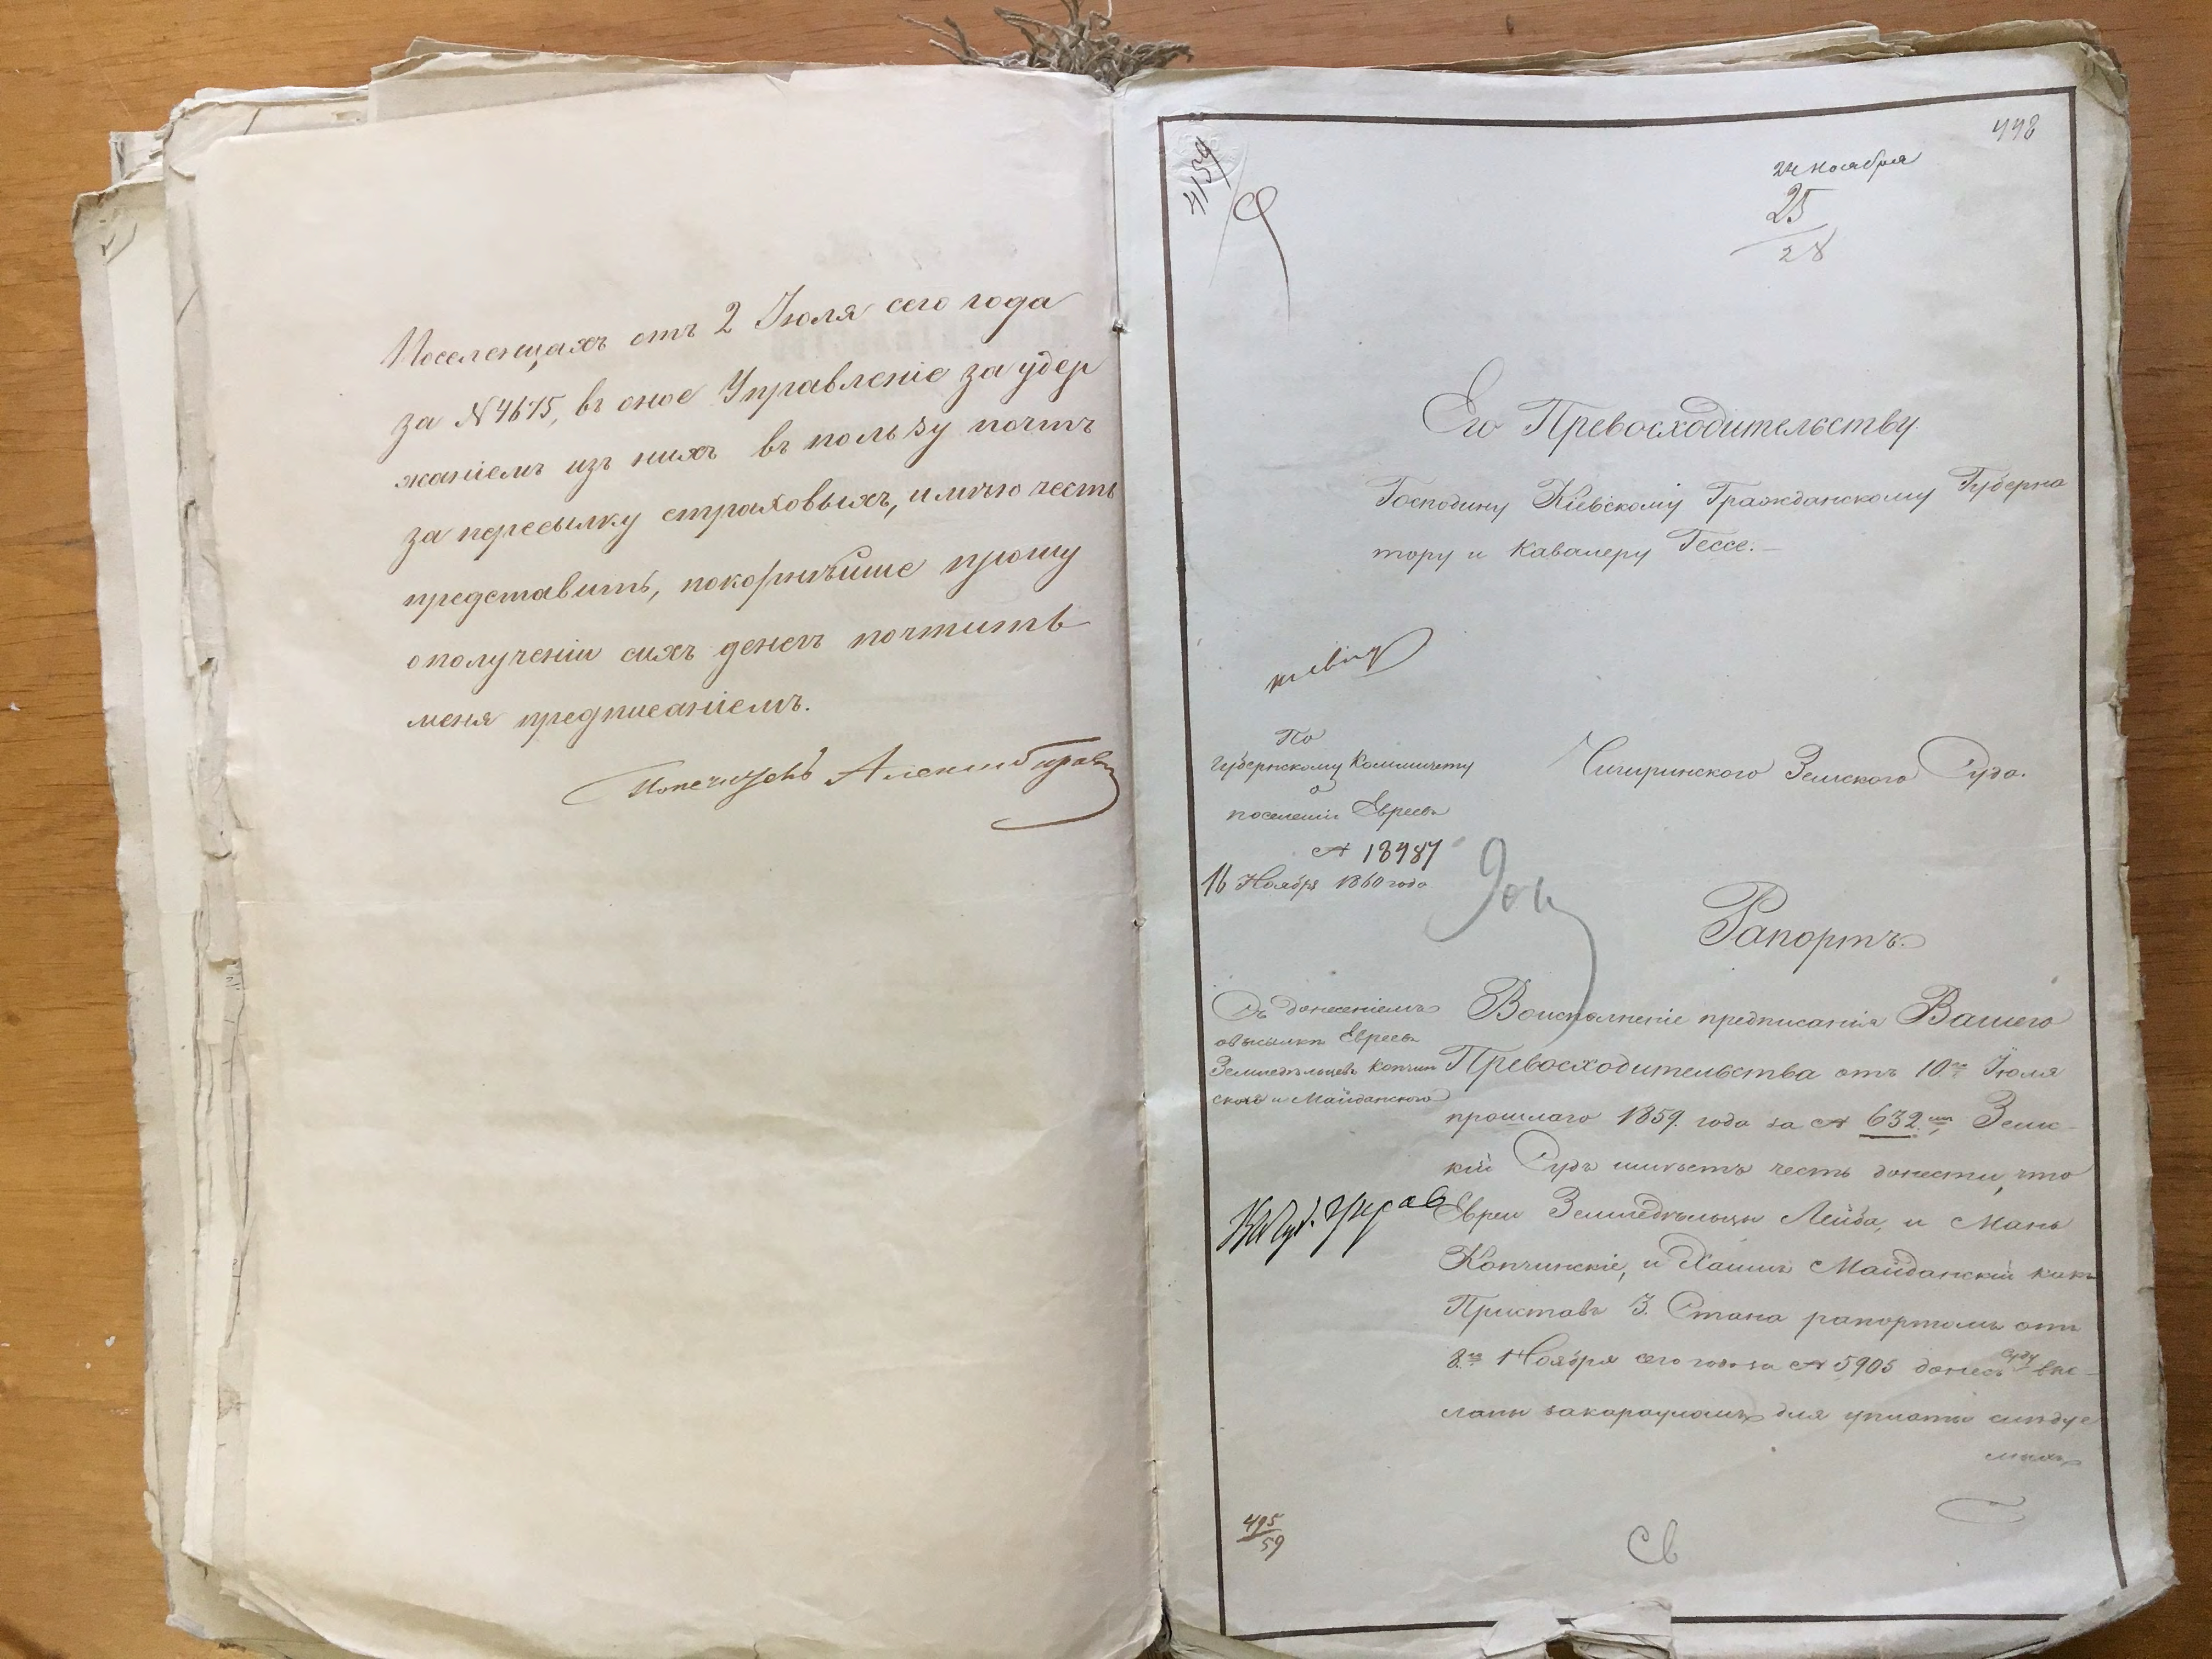 Поселенцахъ отъ 2 Іюля сего года
за №4675, въ оное Управленіе за удер
жаніемъ изъ нихъ въ пользу почтъ
за пересылку страховыхъ, имѣю честь
представить, покорнѣйше прошу
ополученіи сихъ денегъ почтить
меня предписаніемъ.
Попечитель
448
4159
24 ноября
25
28
Его Превосходительству
Господину Кіевскому Гражданскому Губерна
тору и Кавалеру Гессе.
По
Губернскому Комитету
о
поселеніи Евреевъ
№ 18487
16 Ноября 1860 года
Чигиринского Земского Суда.
Рапортъ.
Съ донесеніемъ
овысылкѣ Евреевъ
Земледѣльцевъ Копчин
скихъ и Майданского
Воисполненіе предписанія Вашего
Превосходительства отъ 10го Іюля
прошлаго 1859. года за № 632.мъ, Земс-
кій Судъ имѣетъ честь донести, что
Евреи Земледѣльцы Лейба, и Мань
Копчинскіе, и Хаимъ Майданскій какъ
Приставъ 3. Стана рапортомъ отъ
8.го Ноября сего года за № 5905 донесъ Суду выс-
ланы закарауломъ для уплаты слѣдуе
мыхъ
495
59
св